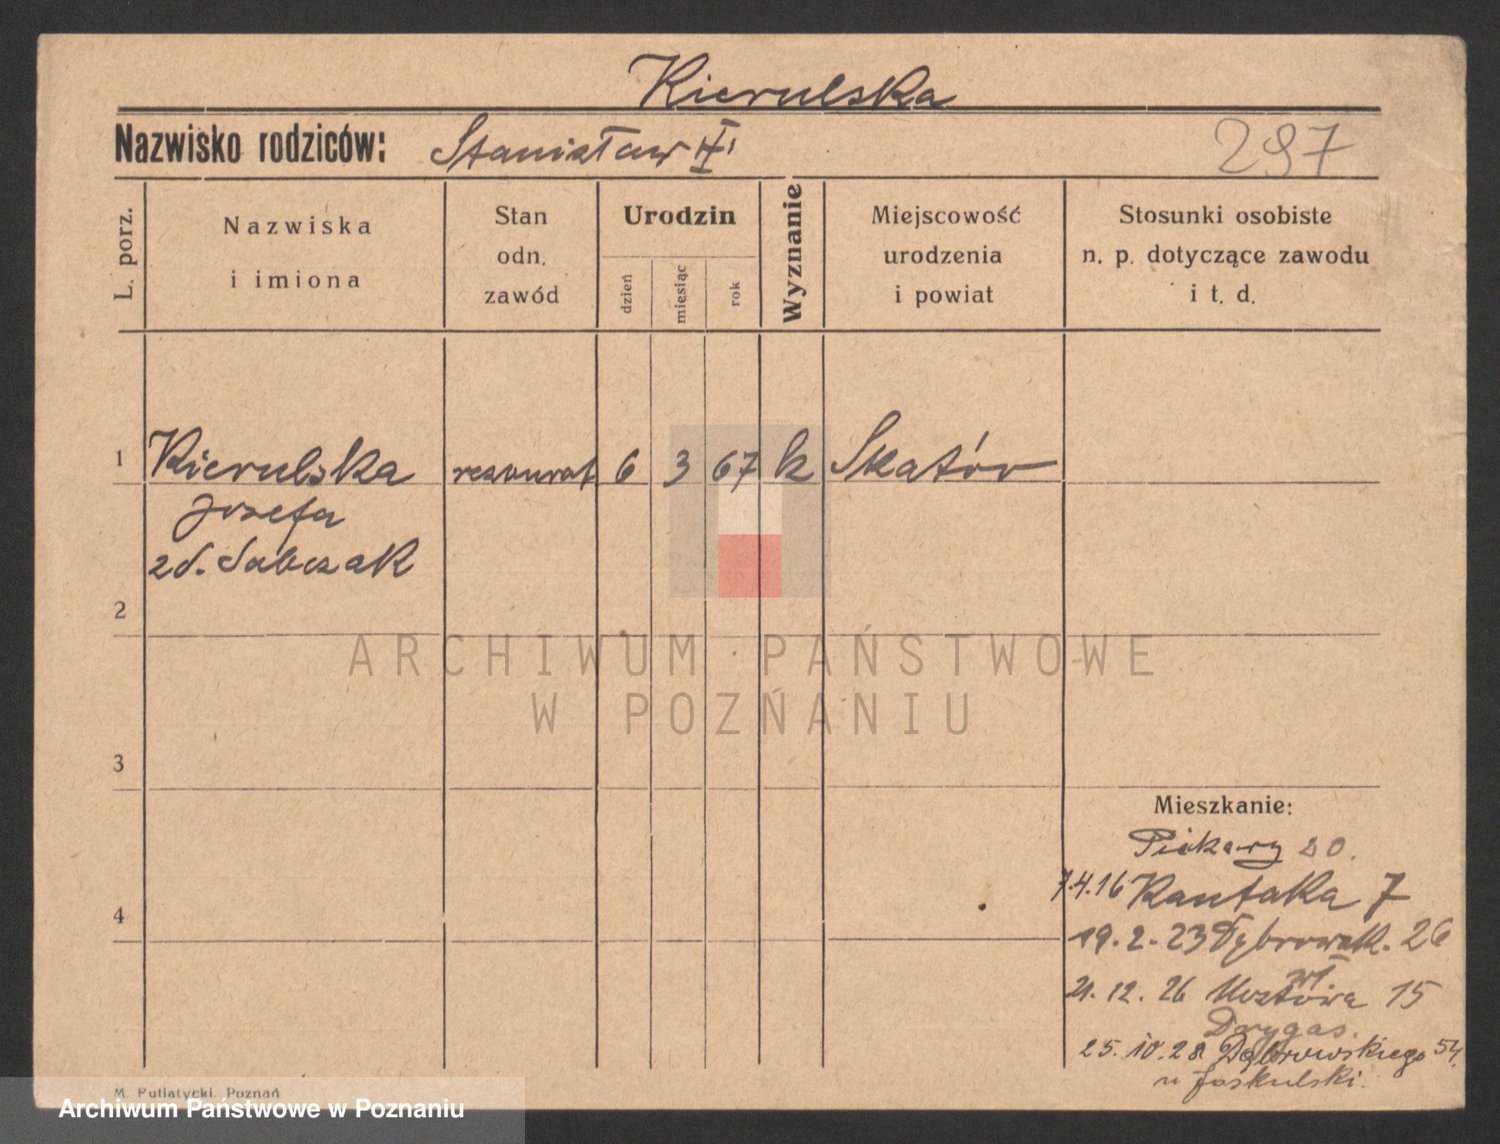 Kierulska
Nazwisko rodziców: Stanisław
297
L. porz.
Nazwiska
i imiona
Stan
odn.
zawód
Urodzin
dzień
miesiąc
rok
Wyznanie
Miejscowość
urodzenia
i powiat
Stosunki osobiste
n. p. dotyczące zawodu
i t. d.
1 Kierulska 6 3 67 k Skatór
Jozefa
zd. Sobczak
2
3
4
ARCHIWUM PAŃSTWOWE
W POZNANIU
Mieszkanie:
Piekary 20.
7.4.16 Kantaka 7
19.2.23 Dąbrowsk. 26
21.12.26 Mostowa 15
Drygas.
25.10.28 Dąbrowskiego 54
u Joskulski.
M. Putiatycki, Poznań
Archiwum Państwowe w Poznaniu